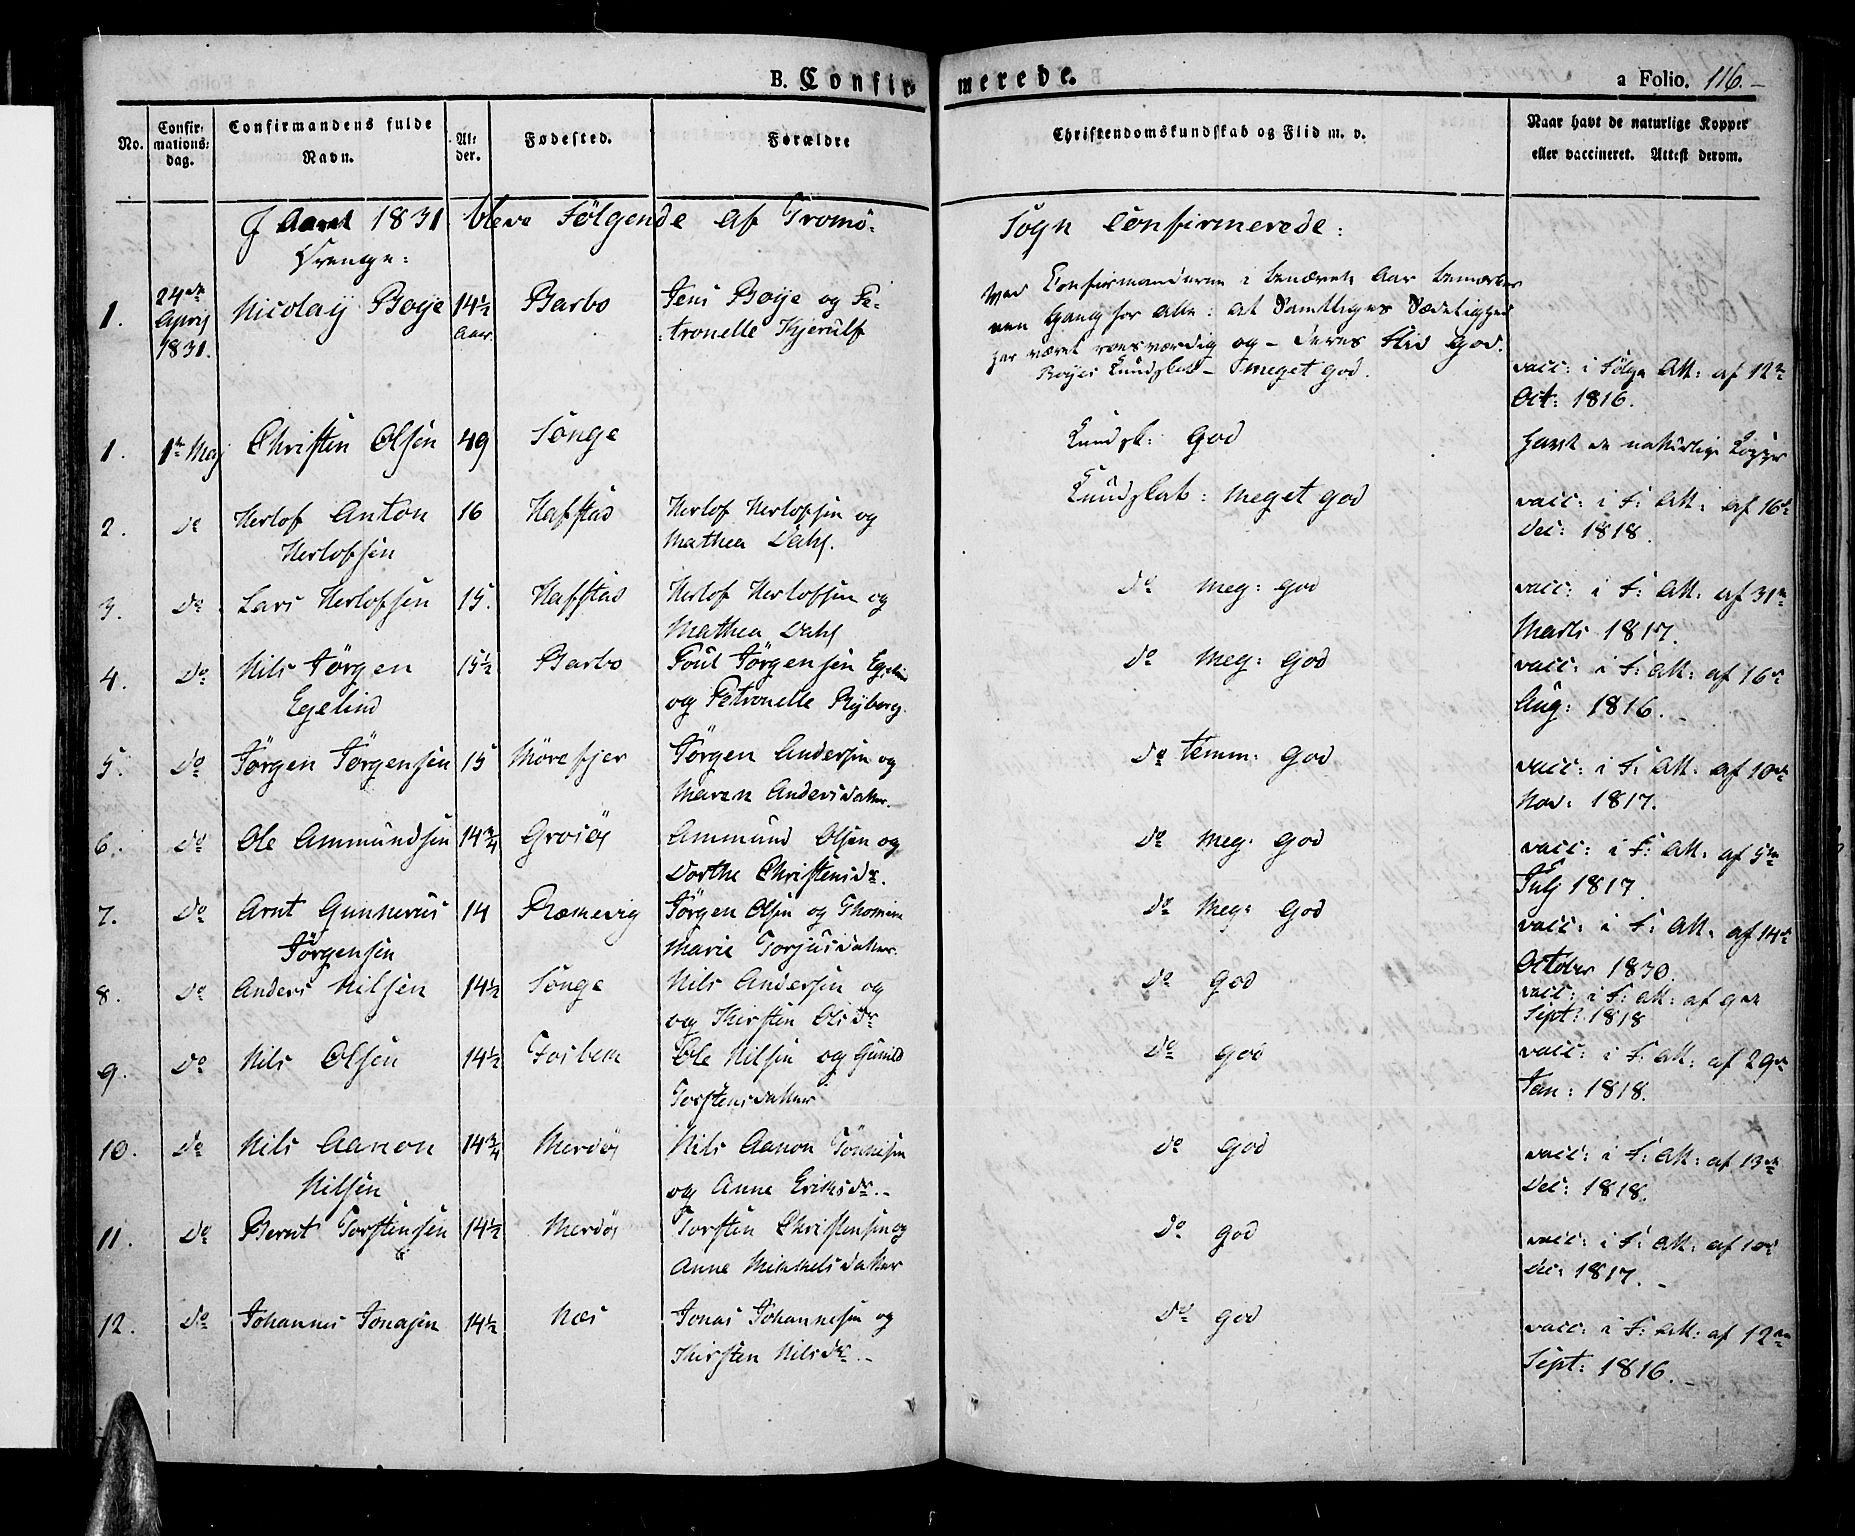 B. Confirmerede.
a Folio. 116.
No.
Confirmationsdag.
Confirmandens fulde Navn.
Alder.
Fødested.
Forældre
Christendomskundskab og Flid m. v.
Naar havt de naturlige Kopper eller vaccineret. Attest derom.
I Aaret 1831 bleve Følgende af Tromö-Sogn Confirmerede:
Drenge:
1. 24de April 1831. Nicolaij Boye 14½ Aar. Barbo Jens Boye og Petronelle Kjerulf
Ved Confirmanderne i benævnte Aar bemærkes
een Gang for Alle: at Samtliges Sædelighed
har været roesværdig og deres Flid god.
Boyes Kundskab - meget god.
vacc: i Følge Att: af 12te
Oct: 1816.
1. 1te Maj Christen Olsen 49 Songe Kundsk: God havt de naturlige Kopper
2. do Herlof Anton 16 Hafstad Herlof Herlofsen og Kundskab: meget god vacc: i F: Att: af 16de
Herlofsen Mathea Dahl. Dec: 1818.
3. Do Lars Herlofsen 15. Hafstad Herlof Herlofsen og Do meg: god vacc: i F: Att: af 31te
Mathea Dahl Marts 1817.
4. Do Nils Jörgen 15½ Barbo Poul Jörgensen Egelind Do meg: god vacc: i F: Att: af 16de
Egelind og Petronelle Ryberg. Aug: 1816.
5. Do Jörgen Jörgensen 15 Mörefjer Jörgen Andersen og Do temm: god vacc: i F: Att: af 10de
Maren Andersdatter. Nov: 1817.
6. Do Ole Ammundsen 14¾ Grosös Ammund Olsen og Do meg: god vacc: i F: Att: af 5te
Dorthe Christensdr. Julj 1817.
7. Do Arnt Gunnerius 14 Ræmevig Jörgen Olsen og Thomine Do meg: god vacc: i F: Att: af 14de
Jörgensen Marie Torjusdatter. October 1830.
8. Do Anders Nilsen 14½ Songe Nils Andersen og Do god vacc: i F: Att: af 9de
og Kirsten Olsdr Sept: 1818
9. Do Nils Olsen 14½ Fosbem Ole Nilsen og Gunild Do god vacc: i F: Att: af 29de
Torstensdatter Jan: 1818.
10. Do Nils Aanon 14¾ Merdös Nils Aanon Tönnesen Do god vacc: i F: Att: af 13de
Nilsen og Anne Eriksdr. Dec: 1818.
11. Do Bernt Torstensen 14½ Merdös Torsten Christensen og Do god vacc: i F: Att: af 10de
Anne Mikkelsdatter Dec: 1817.
12. Do Johannes Jonasen 14½ Næs Jonas Johannesen og Do god vacc: i F: Att: af 12te
Kirsten Nilsdr. Sept: 1816.